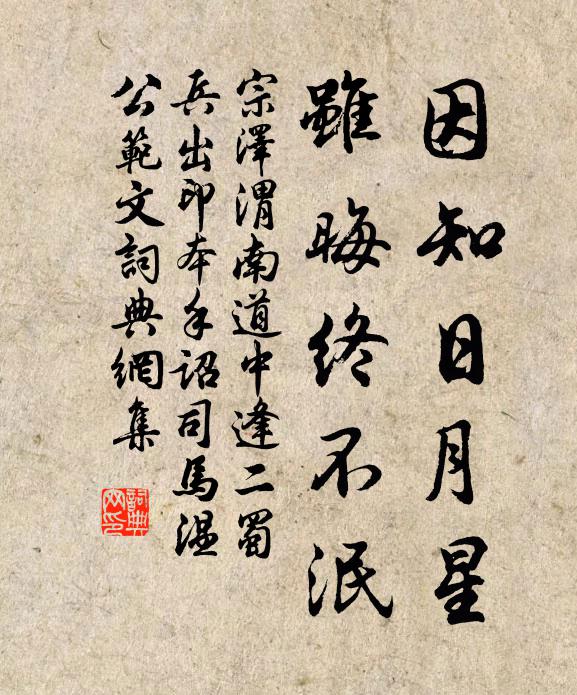 因知日月星
雖晦終不泯
宗澤渭南道中逢二蜀
兵出印本手詔司馬溫
公範文詞典網集
詞典
网印